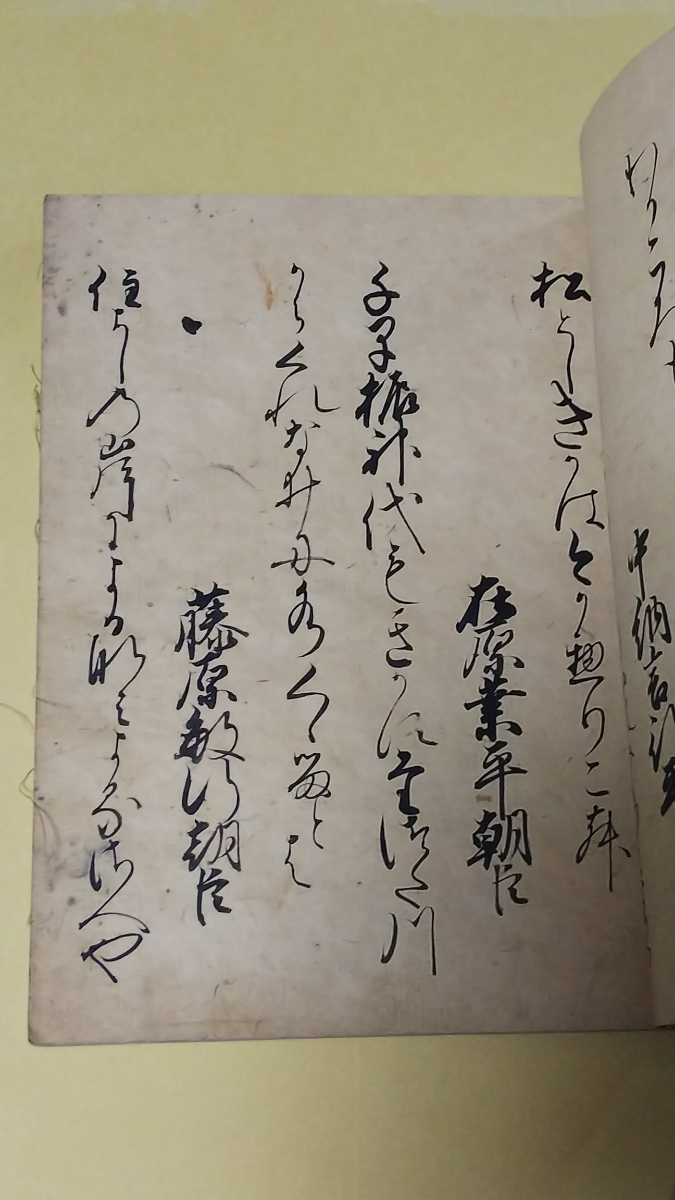 中納言行平
松としきかは今かへりこむ
在原業平朝臣
千早振神代もきかすたつた川
からくれなゐに水くゝるとは
藤原敏行朝臣
住よしの岸によるなみよるさへや